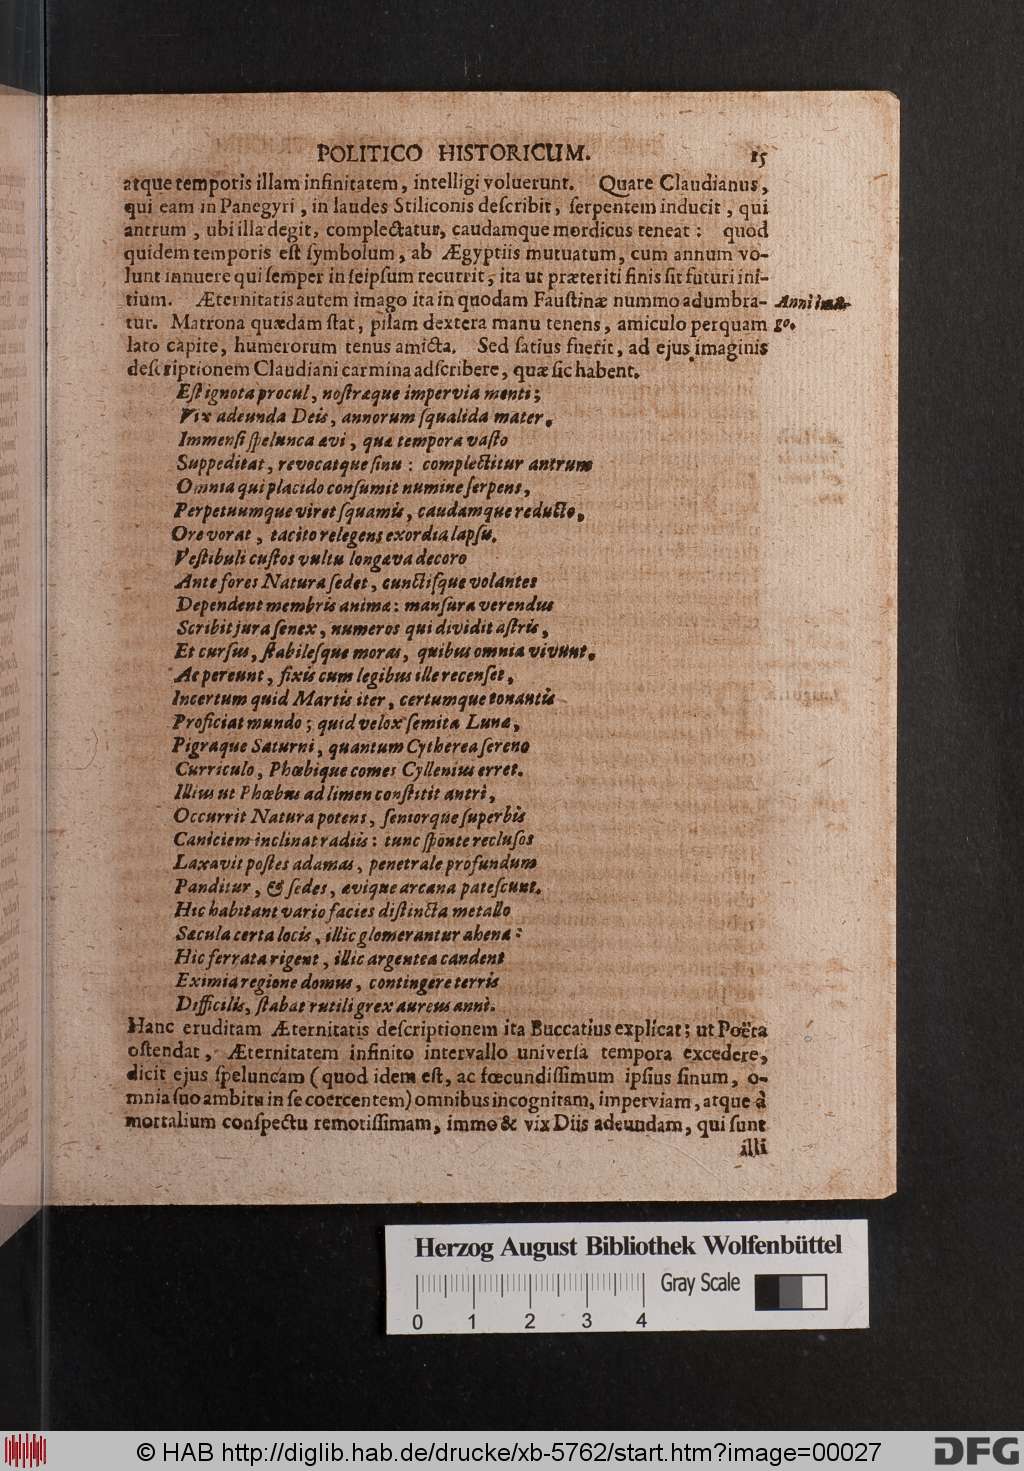 POLITICO HISTORICUM. 15
atque temporis illam infinitatem, intelligi voluerunt. Quare Claudianus,
qui eam in Panegyri, in laudes Stiliconis deſcribit, ſerpentem inducit, qui
antrum, ubi illa degit, complectatur, caudamque mordicus teneat: quod
quidem temporis eſt ſymbolum, ab Ægyptiis mutuatum, cum annum vo-
lunt innuere qui ſemper in ſeipſum recurrit, ita ut præteriti finis ſit futuri ini-
tium. Æternitatis autem imago ita in quodam Fauſtinæ nummo adumbra-
Anni ima-
tur. Matrona quædam ſtat, pilam dextera manu tenens, amiculo perquam
go.
lato capite, humerorum tenus amicta. Sed ſatius fuerit, ad ejus imaginis
deſcriptionem Claudiani carmina adſcribere, quæ ſic habent.
Eſt ignota procul, noſtræque impervia menti;
Vix adeunda Deis, annorum ſqualida mater.
Immenſi ſpelunca ævi, quæ tempora vaſto
Suppeditat, revocatque ſinu: complectitur antrum
Omnia qui placido conſumit numine ſerpens,
Perpetuumque viret ſquamis, caudamque reducto,
Ore vorat, tacito relegens exordia lapſu.
Veſtibuli cuſtos vultu longæva decoro
Ante fores Natura ſedet, cunctiſque volantes
Dependent membris animæ: manſura verendus
Scribit jura ſenex, numeros qui dividit aſtris,
Et curſus, ſtabileſque moras, quibus omnia vivunt.
Ac pereunt, fixis cum legibus ille recenſet,
Incertum quid Martis iter, certumque tonantis
Proficiat mundo; quid velox ſemita Lunæ,
Pigraque Saturni, quantum Cytherea ſereno
Curriculo, Phœbique comes Cyllenius erret.
Illius ut Phœbus ad limen conſtitit antri,
Occurrit Natura potens, ſeniorque ſuperbis
Caniciem inclinat radiis: tunc ſponte recluſos
Laxavit poſtes adamas, penetrale profundum
Panditur, & ſedes, ævique arcana pateſcunt.
Hic habitant vario facies diſtincta metallo
Sæcula certa locis, illic glomerantur ahena:
Hic ferrata rigent, illic argentea candent
Eximia regione domus, contingere terris
Difficilis, ſtabat rutili grex aureus anni.
Hanc eruditam Æternitatis deſcriptionem ita Buccatius explicat; ut Poëta
oſtendat, Æternitatem infinito intervallo univerſa tempora excedere,
dicit ejus ſpeluncam (quod idem eſt, ac fœcundiſſimum ipſius ſinum, o-
mnia ſuo ambitu in ſe coercentem) omnibus incognitam, imperviam, atque à
mortalium conſpectu remotiſſimam, immo & vix Diis adeundam, qui ſunt
illi
Herzog August Bibliothek Wolfenbüttel
Gray Scale
0 1 2 3 4
© HAB http://diglib.hab.de/drucke/xb-5762/start.htm?image=00027
DFG